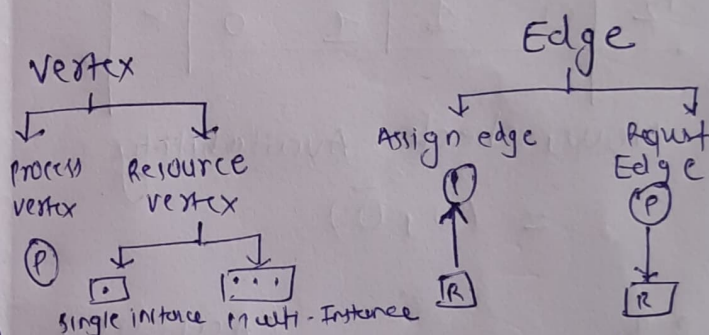 Vertex
Process
vertex
P
Resource
vertex
Single instance
Multi-Instance
Edge
Assign edge
P
R
Requst
Edge
P
R